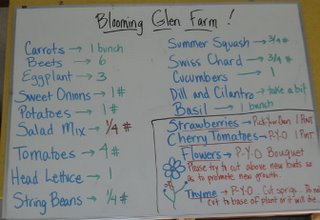 Blooming Glen Farm!
Carrots → 1 bunch
Beets → 6
Eggplant → 3
Sweet Onions → 1#
Potatoes → 1#
Salad Mix → 1/4 #
Tomatoes → 4#
Head Lettuce → 1
String Beans → 1/4 #
Summer Squash → 3/4 #
Swiss Chard → 3/4 #
Cucumbers → 1
Dill and Cilantro → take a bit
Basil → 1 bunch
Strawberries → Pick-Your-Own 1 Pint
Cherry Tomatoes → P-Y-O 1 Pint
Flowers → P-Y-O Bouquet
Please try to cut above new buds so
as to promote new growth.
Thyme → P-Y-O. Cut sprigs. Do not
cut to base of plant or it will die.